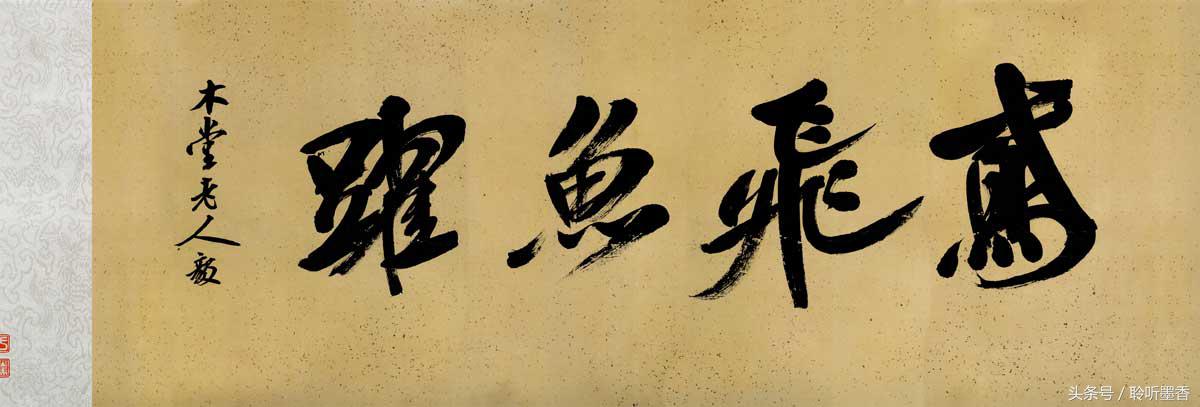 鳶飛魚躍
木堂老人毅
头条号 / 聆听墨香